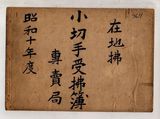 在地拂
小切手受拂簿
專賣局
昭和十年度